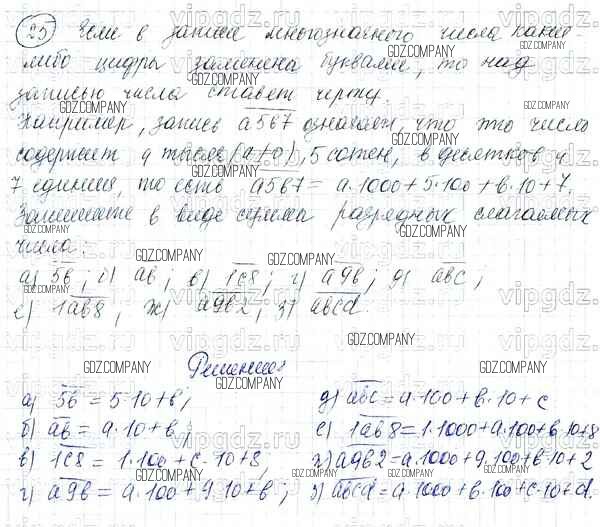 25 Если в записи многозначного числа какие-
либо цифры заменены буквами, то над
записью числа ставят черту.
Например, запись a5b7 означает, что это число
содержит a тысяч (a≠0), 5 сотен, b десятков и
7 единиц, то есть a5b7 = a·1000+5·100+b·10+7.
Запишите в виде суммы разрядных слагаемых
числа:
а) 5b; б) ab; в) 1c8; г) a9b; д) abc;
е) 1ab8; ж) a9b2; з) abcd.
Решение:
а) 5b = 5·10+b;
б) ab = a·10+b;
в) 1c8 = 1·100+c·10+8;
г) a9b = a·100+9·10+b;
д) abc = a·100+b·10+c
е) 1ab8 = 1·1000+a·100+b·10+8
ж) a9b2 = a·1000+9·100+b·10+2
з) abcd = a·1000+b·100+c·10+d.
GDZ.COMPANY
vipgdz.com